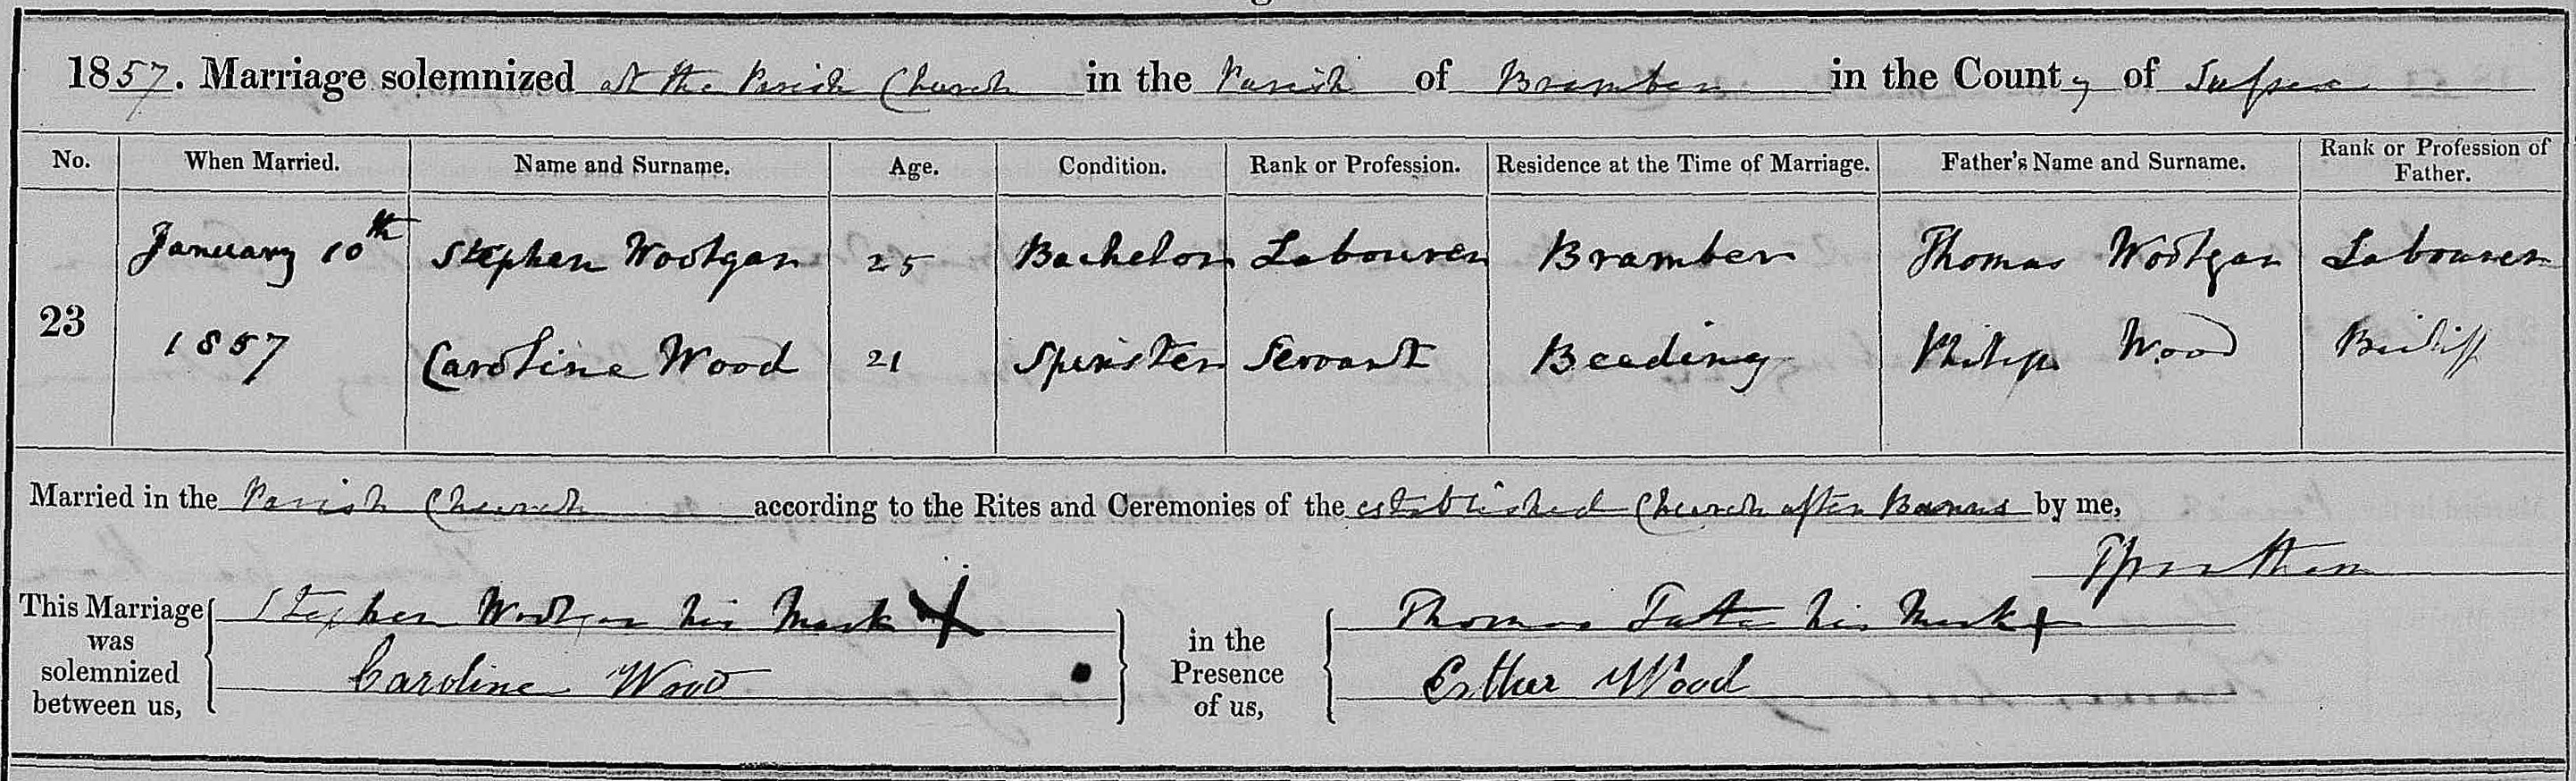 1857. Marriage solemnized at the Parish Church in the Parish of Bramber in the County of Sussex
No. When Married. Name and Surname. Age. Condition. Rank or Profession. Residence at the Time of Marriage. Father's Name and Surname. Rank or Profession of Father.
January 10th Stephen Woolgar 25 Bachelor Labourer Bramber Thomas Woolgar Labourer
23
1857 Caroline Wood 21 Spinster Servant Beeding Philip Wood Bailiff
Married in the Parish Church according to the Rites and Ceremonies of the established Church after Banns by me,
This Marriage was solemnized between us, Stephen Woolgar his Mark X in the Presence of us, Thomas his Mark +
Caroline Wood Esther Wood